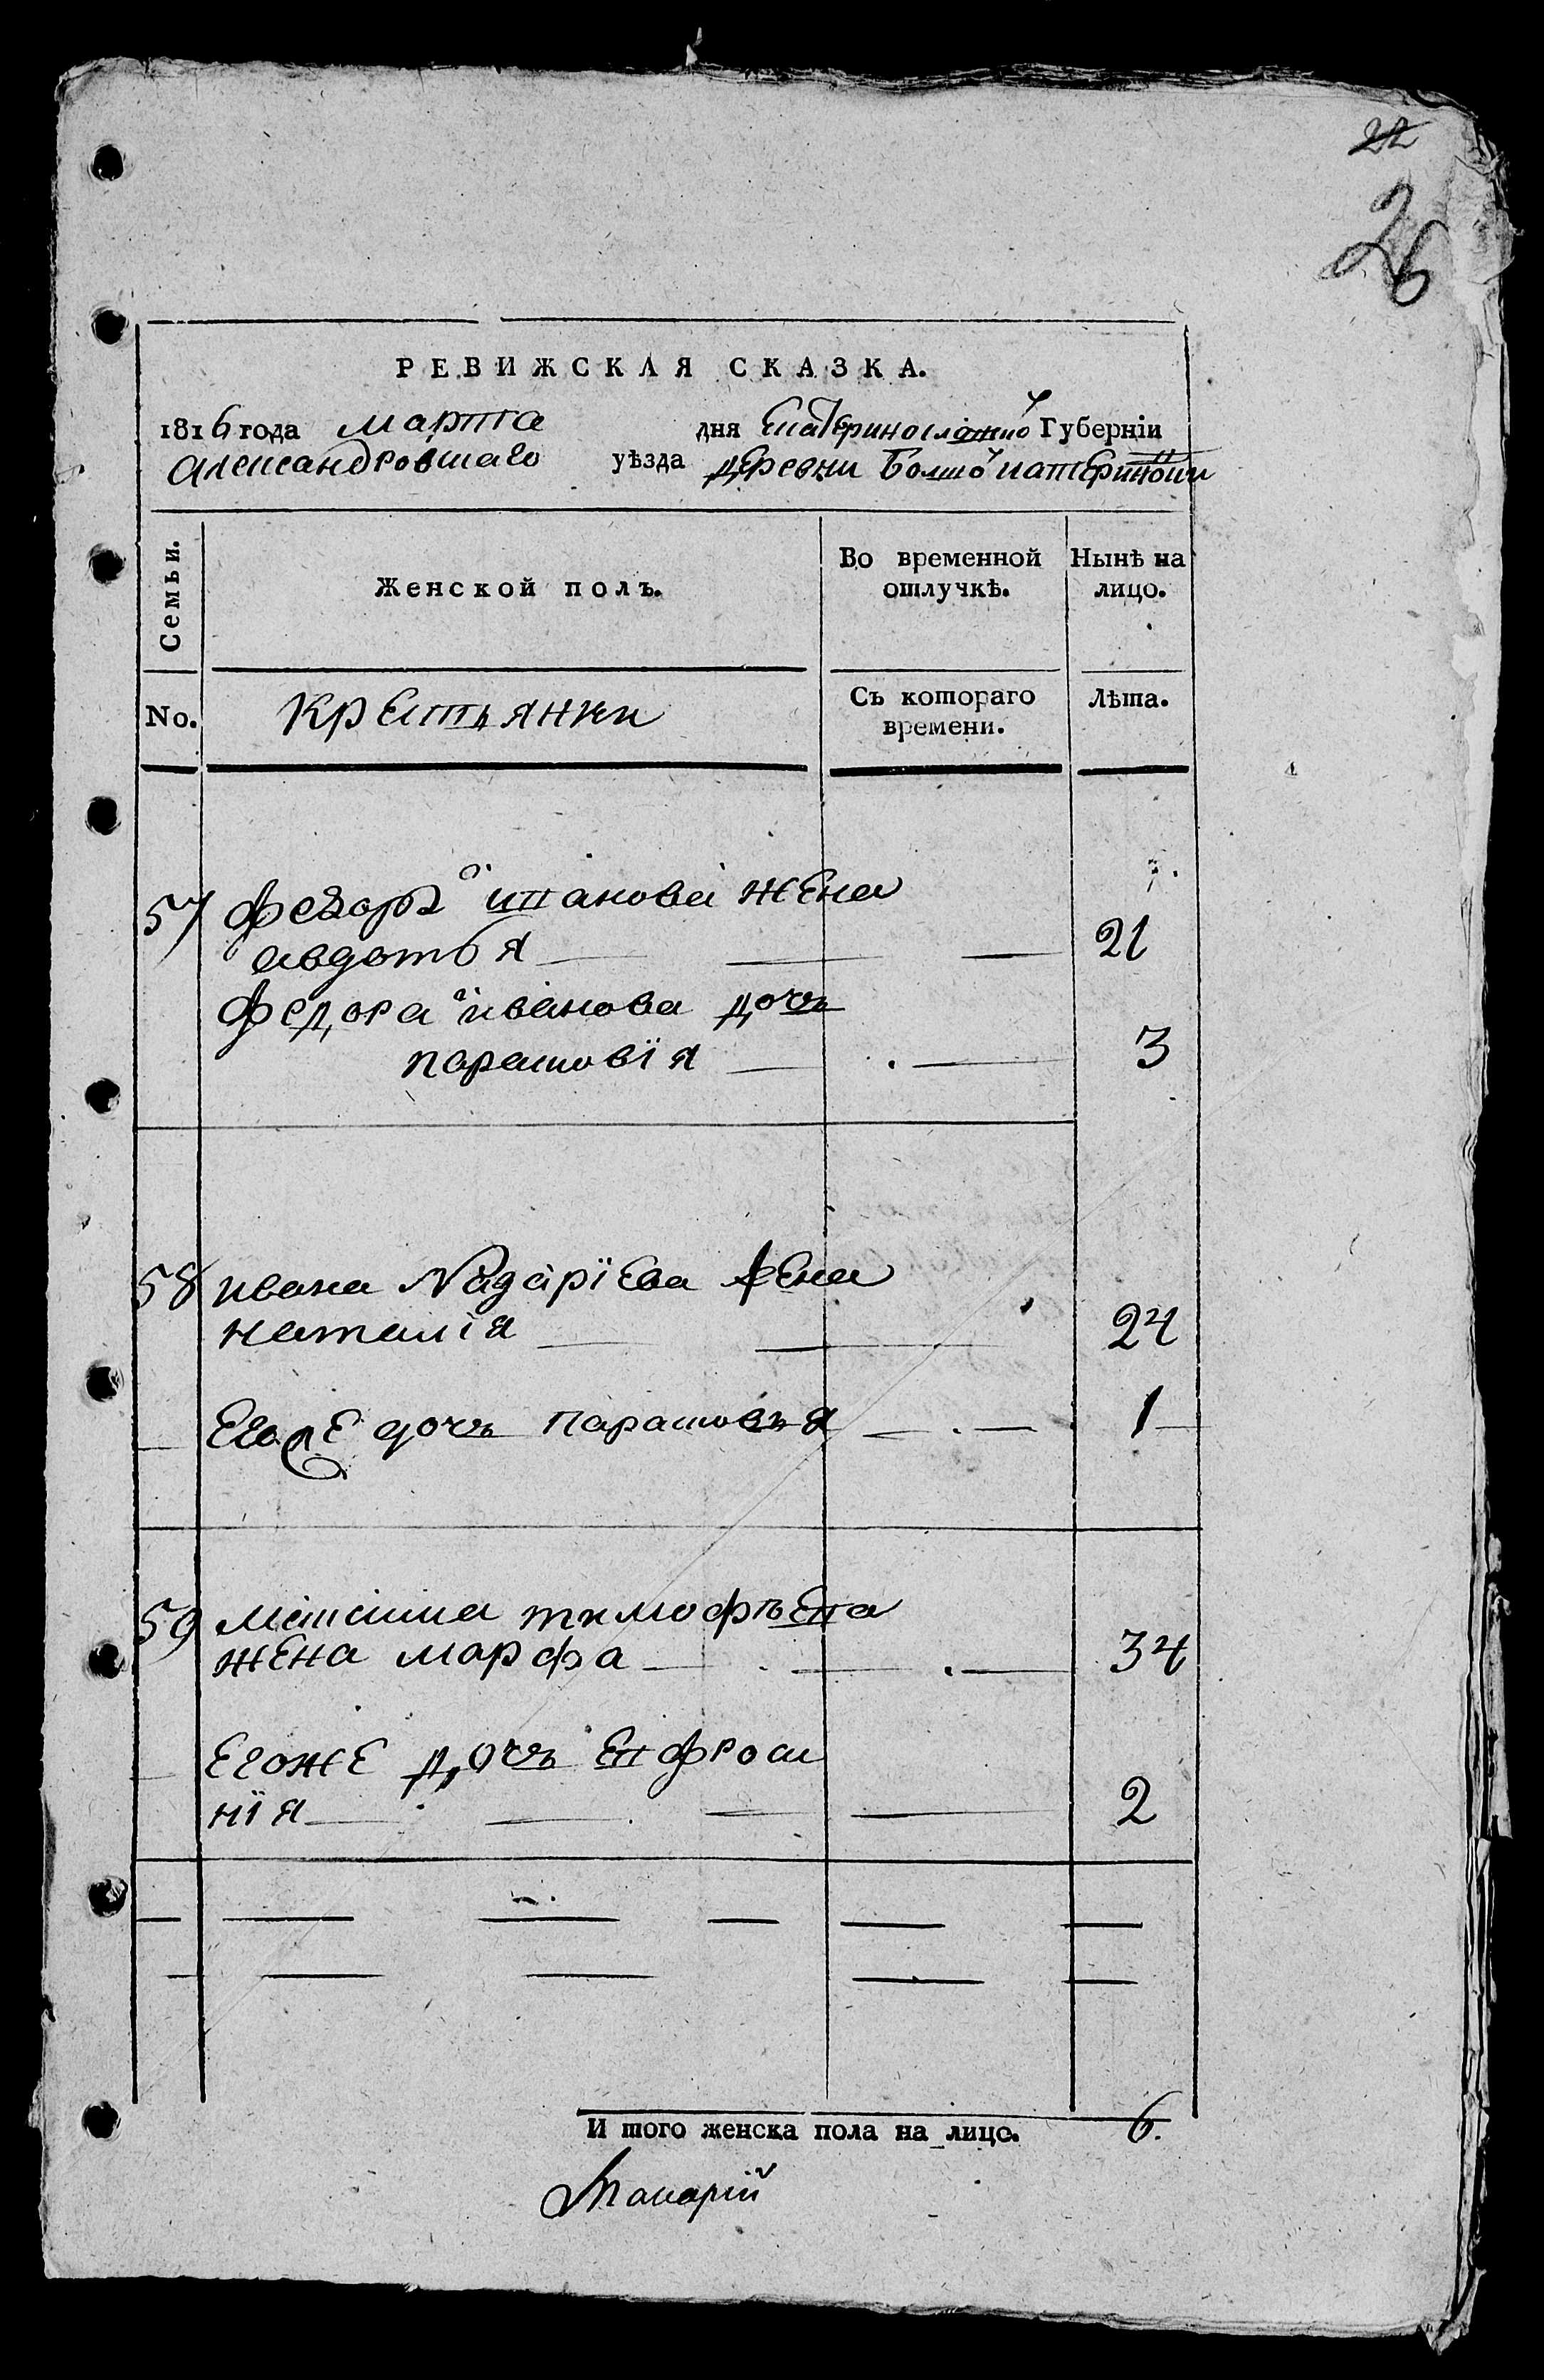 22
26
РЕВИЖСКАЯ СКАЗКА.
1816 года марта дня Екатеринославской Губерніи
Александровскаго уѣзда деревни Болшо катериновки
Семьи. Женской полъ. Во временной отлучкѣ. Нынѣ на лицо.
No. Крестьянки Съ котораго времени. Лѣта.
57 Федора иванова жена
авдотья 21
Федора иванова дочь
парасковїя 3
58 ивана Назарїева жена
наталія 24
Егоже дочь парасковья 1
59 максима тимофѣева
жена марфа 34
Егоже дочь Евфроси
нїя 2
И того женска пола на лицо. 6.
Макарій